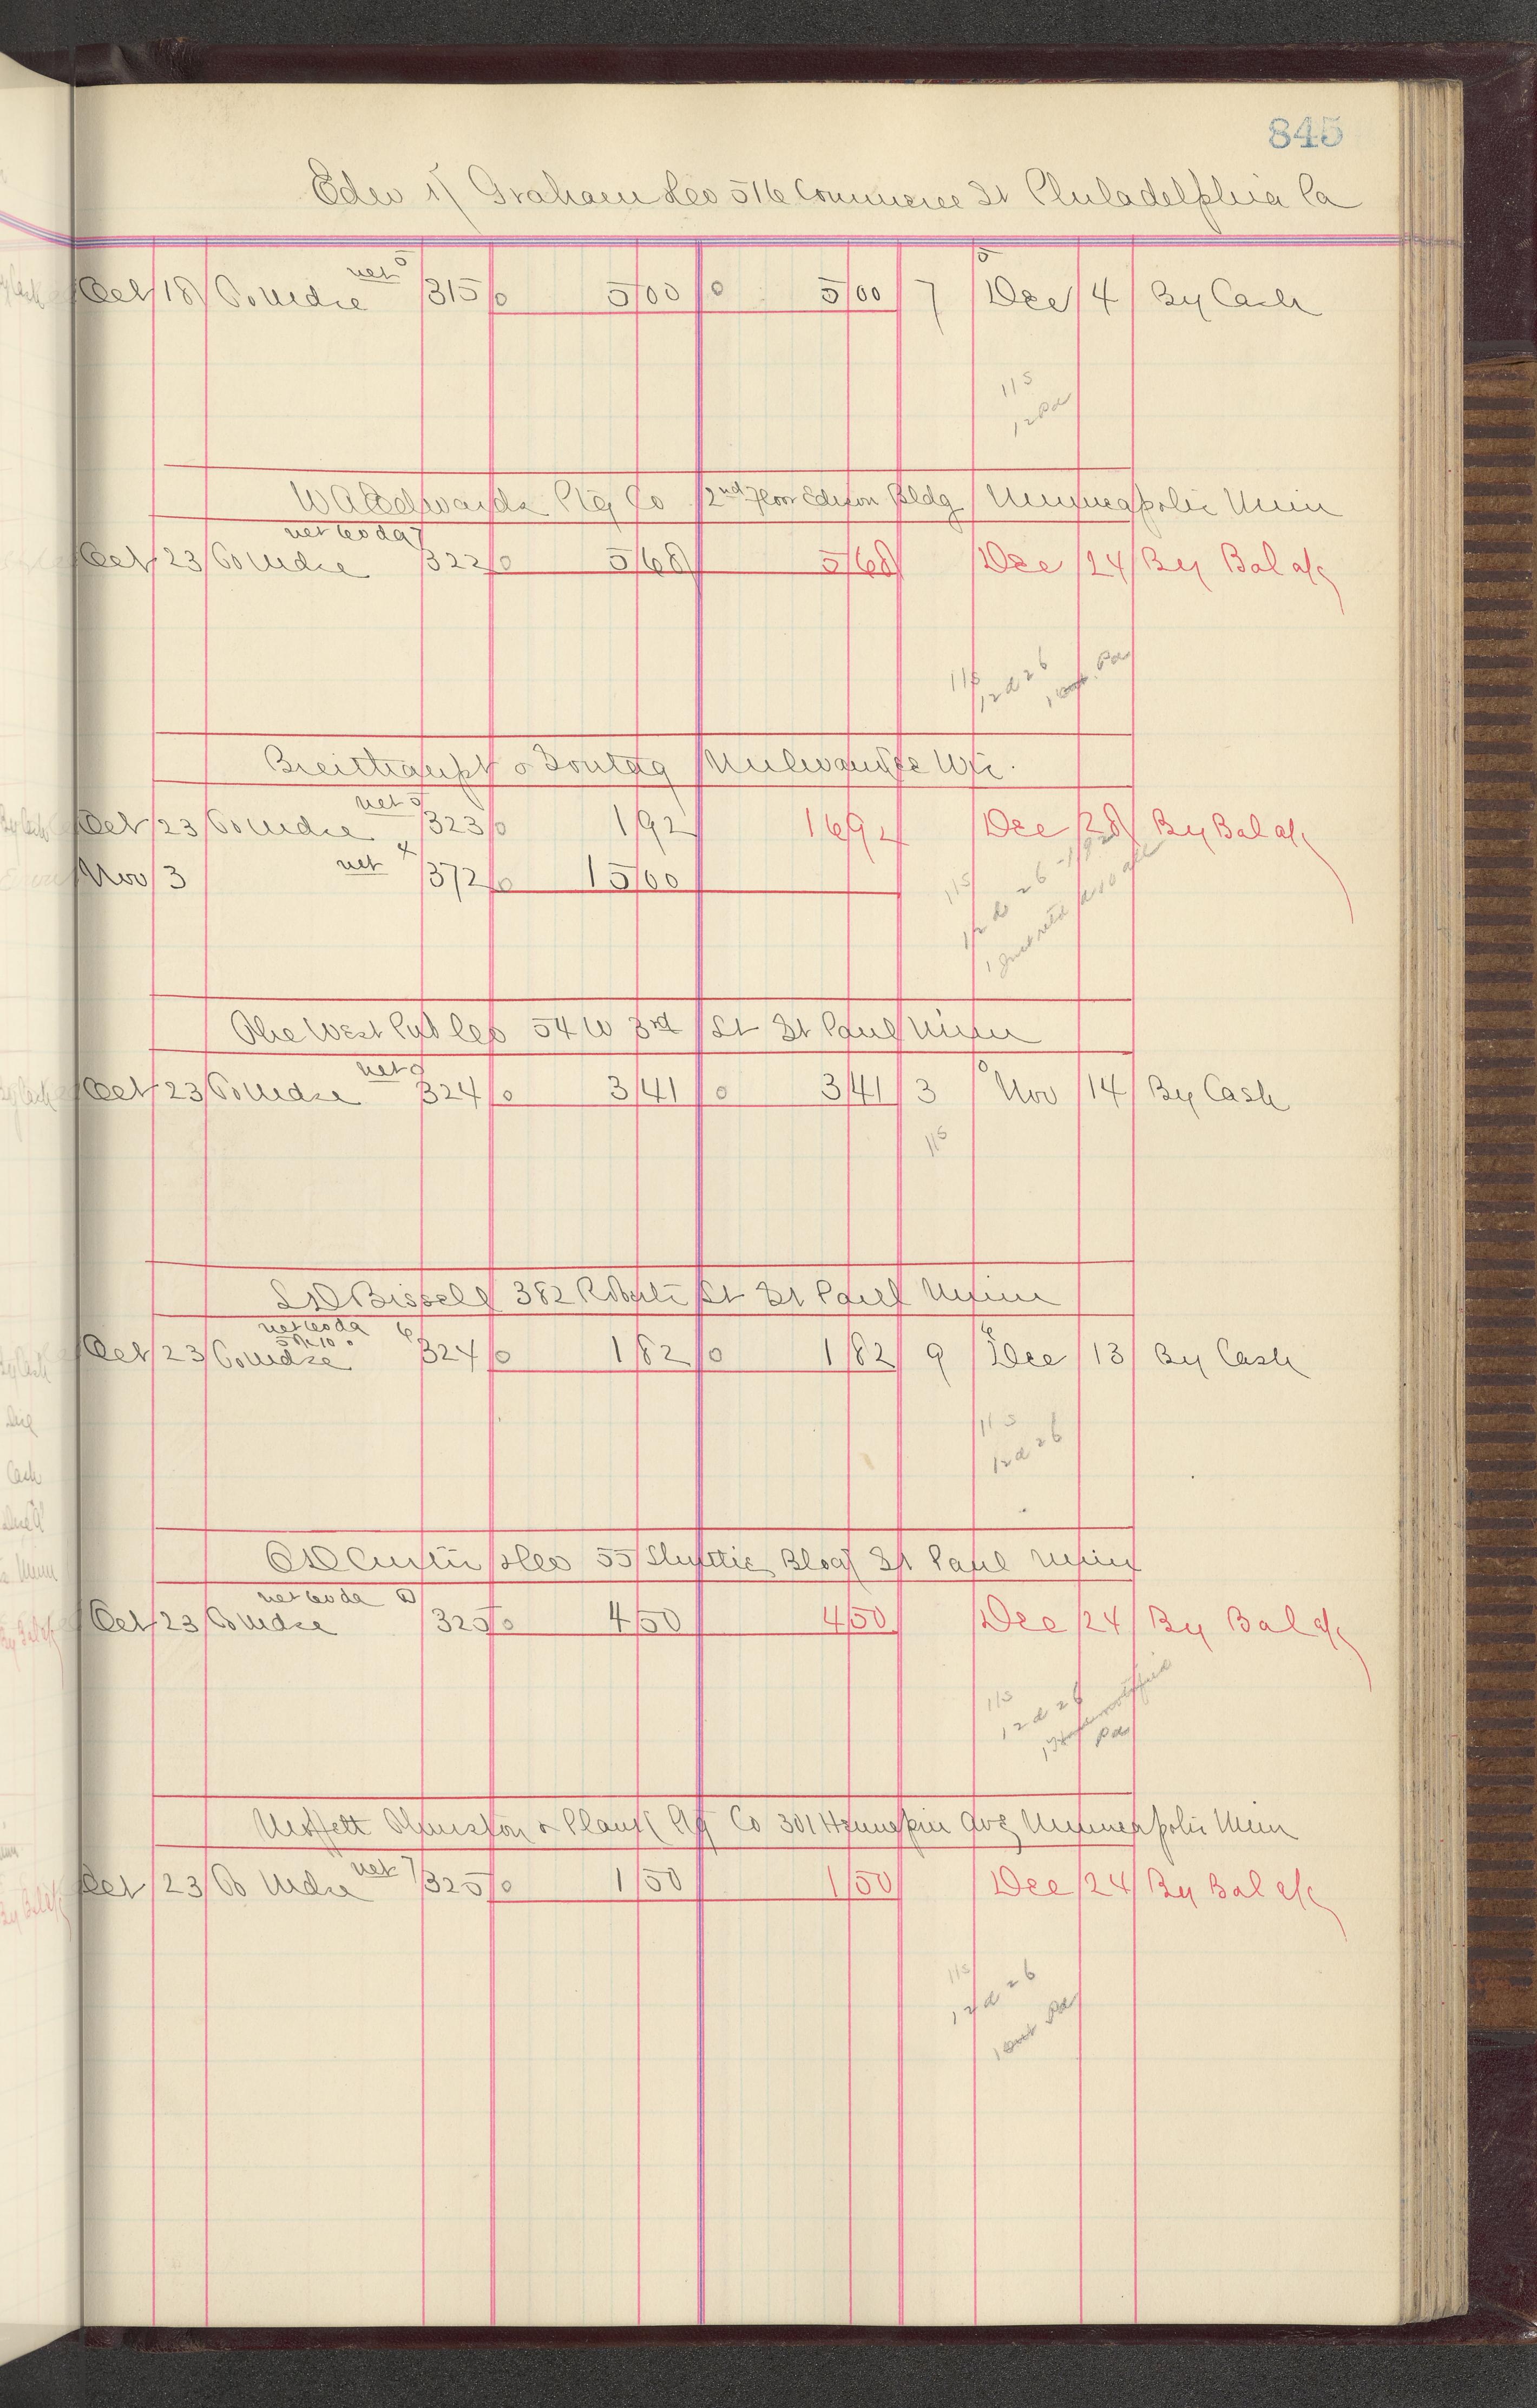 845
Graham & Co 516 Commerce St Philadelphia Pa
net 5 5
Oct 18 To Mdse 315 0 5 00 0 5 00 7 Dec 4 By Cash
115
12 Pd
W A Edwards Ptg Co 2nd Floor Edison Bldg Minneapolis Minn
net 60 da 7
Oct 23 To Mdse 322 0 5 68 5 68 Dec 24 By Bal a/c
115
12 d 26
Pd
Breithaupt & Sontag Milwaukee Wis.
net 5
Oct 23 To Mdse 323 0 1 92 16 92 Dec 28 By Bal a/c
net 4
Nov 3 372 0 15 00
115
12 d 26 - 1 92
The West Pub Co 54 W 3rd St St Paul Minn
net
Oct 23 To Mdse 324 0 3 41 0 3 41 3 Nov 14 By Cash
115
S D Bissell 382 Robert St St Paul Minn
net 60 da 6 6
5% 10
Oct 23 To Mdse 324 0 1 82 0 1 82 9 Dec 13 By Cash
115
12 d 26
Curtis & Co 55 Bldg St Paul Minn
net 60 da
Oct 23 To Mdse 325 0 4 50 4 50 Dec 24 By Bal a/c
115
12 d 26
Pd
Moffett Thurston & Plank Ptg Co 301 Hennepin Ave Minneapolis Minn
net 7
Oct 23 To Mdse 325 0 1 50 1 50 Dec 24 By Bal a/c
115
12 d 26
Pd